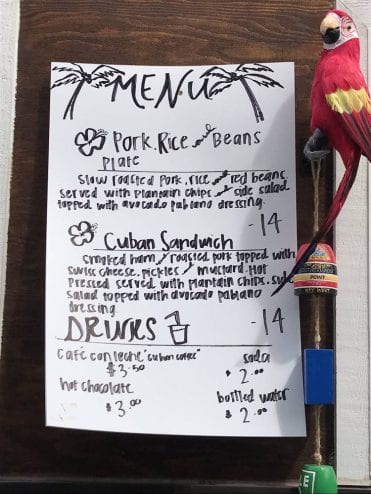 MENU
Pork, Rice and Beans
Plate
Slow roasted pork, rice and red beans
served with plantain chips and side salad
topped with avocado pablano dressing.
-14
Cuban Sandwich
smoked ham, roasted pork topped with
swiss cheese, pickles, mustard. Hot
pressed served with plantain chips. side
salad topped with avocado pablano
dressing.
-14
DRINKS
Café con leche "cuban coffee"
$3.50
soda
$2.00
hot chocolate
$3.00
bottled water
$2.00
POINT
KEY WEST